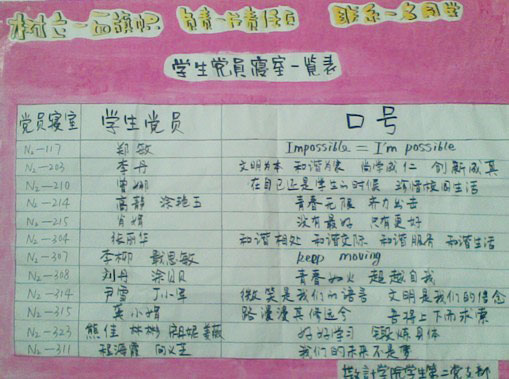 树立一面旗帜 负责一片责任区 联系一名同学
学生党员寝室一览表
党员寝室 学生党员 口号
N2-117 郑敏 Impossible = I'm possible
N2-203 李丹 文明为本 和谐为裳 尚学成仁 创新成真
N2-210 曾娜 在自己还是学生的时候 珍惜校园生活
N2-214 高静 涂艳三 青春无限 齐力出击
N2-215 肖婧 没有最好 只有更好
N2-304 张丽华 和谐相处 和谐交际 和谐服务 和谐生活
N2-307 李柳 戴思敏 keep moving
N2-308 刘丹 涂贝贝 青春如火 超越自我
N2-314 尹雪 丁小军 微笑是我们的语言 文明是我们的信念
N2-315 小娟 路漫漫其修远兮 吾将上下而求索
N2-323 熊佳 林彬 好好学习 锻炼身体
N2-311 程海霞 向义王 我们的未来不是梦
学院学生第二党支部